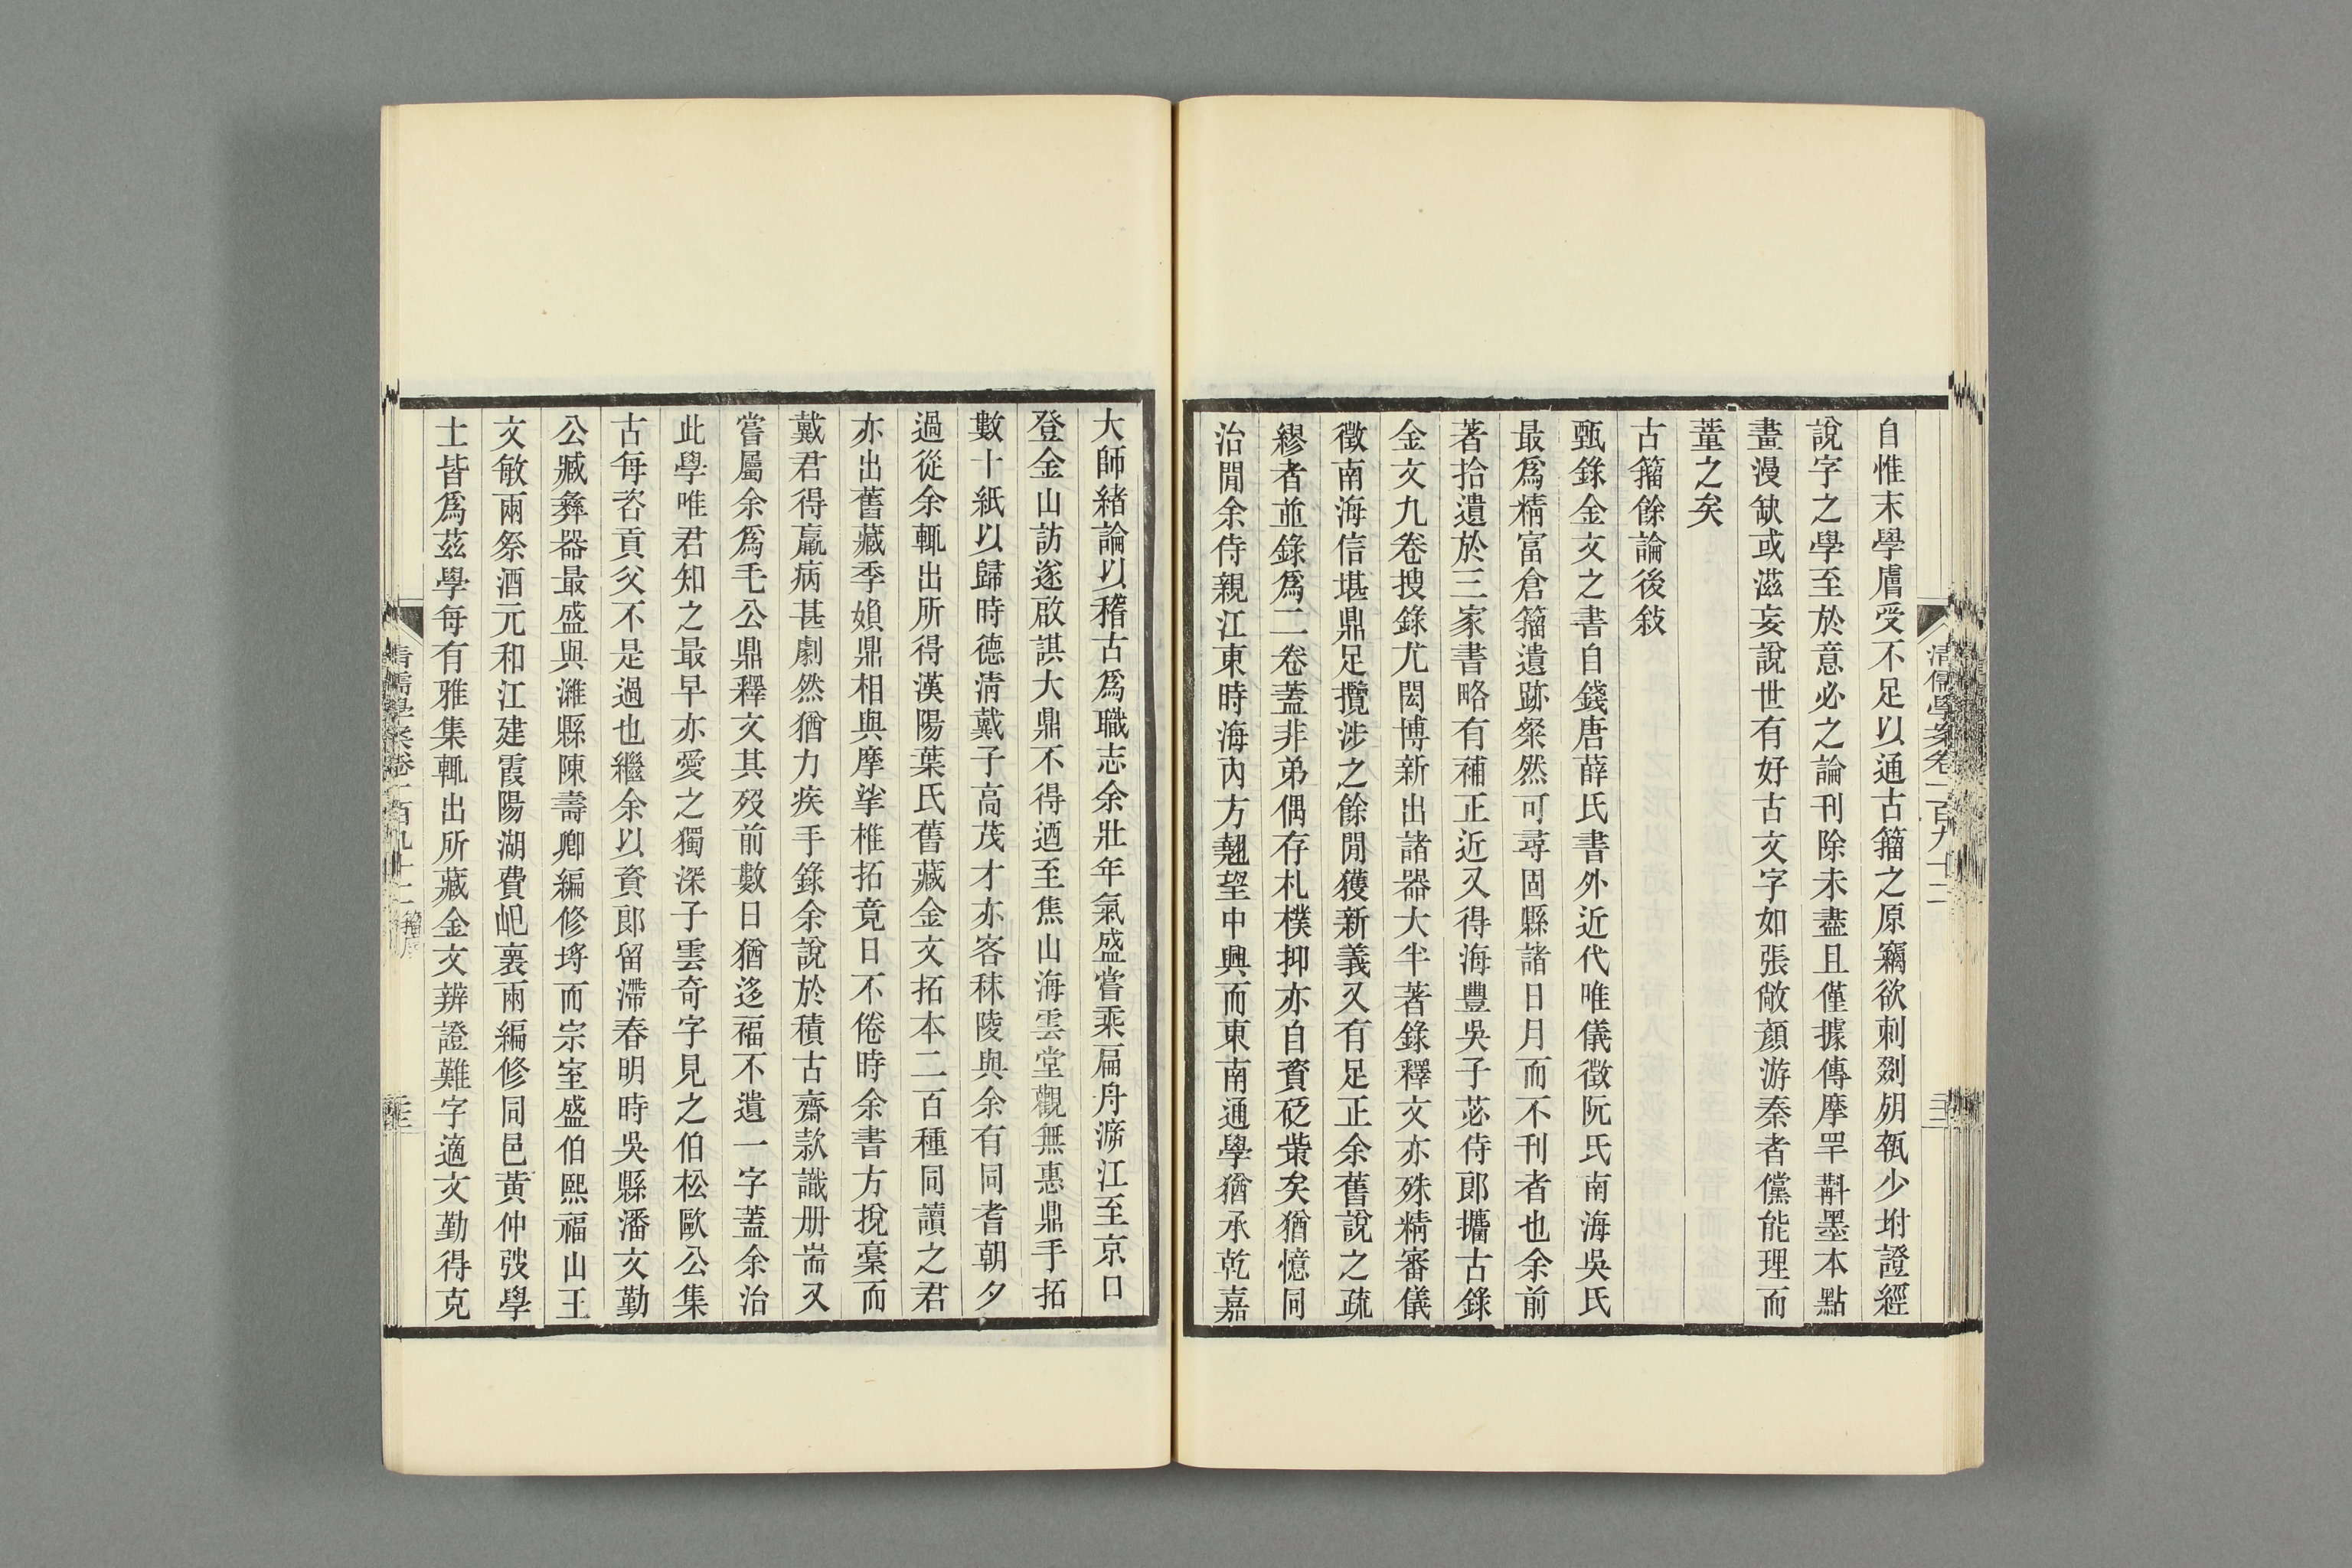 自惟末學膚受不足以通古籀之原竊欲刺剟𦙍㼝少坿證經
說字之學至於意必之論刊除未盡且僅據傳摩罕斠墨本點
畫漫缺或滋妄說世有好古文字如張敞顏游秦者儻能理而
董之矣
古籀餘論後敍
甄錄金文之書自錢唐薛氏書外近代唯儀徵阮氏南海吳氏
最爲精富倉籀遺跡粲然可尋固縣諸日月而不刊者也余前
著拾遺於三家書略有補正近又得海豐吳子苾侍郎攟古錄
金文九卷搜錄尤閎博新出諸器大半著錄釋文亦殊精審儀
徵南海信堪鼎足攬涉之餘閒獲新義又有足正余舊說之疏
繆者並錄爲二卷蓋非弟偶存札樸抑亦自資砭𤺊矣猶憶同
治閒余侍親江東時海內方翹望中興而東南通學猶承乾嘉
大師緒論以稽古爲職志余壯年氣盛嘗乘扁舟㳂江至京口
登金山訪遂啟諆大鼎不得迺至焦山海雲堂觀無惠鼎手拓
數十紙以歸時德淸戴子高茂才亦客秣陵與余有同耆朝夕
過從余輒出所得漢陽葉氏舊藏金文拓本二百種同讀之君
亦出舊藏季媜鼎相與摩挲椎拓竟日不倦時余書方挩稾而
戴君得羸病甚劇然猶力疾手錄余說於積古齋款識册耑又
嘗屬余爲毛公鼎釋文其歿前數日猶迻福不遺一字蓋余治
此學唯君知之最早亦愛之獨深子雲奇字見之伯松歐公集
古每咨貢父不是過也繼余以資郎留滯春明時吳縣潘文勤
公臧彝器最盛與濰縣陳壽卿編修埒而宗室盛伯熙福山王
文敏兩祭酒元和江建霞陽湖費屺褱兩編修同邑黃仲弢學
士皆爲茲學每有雅集輒出所藏金文辨證難字適文勤得克
清儒學案卷一百九十二